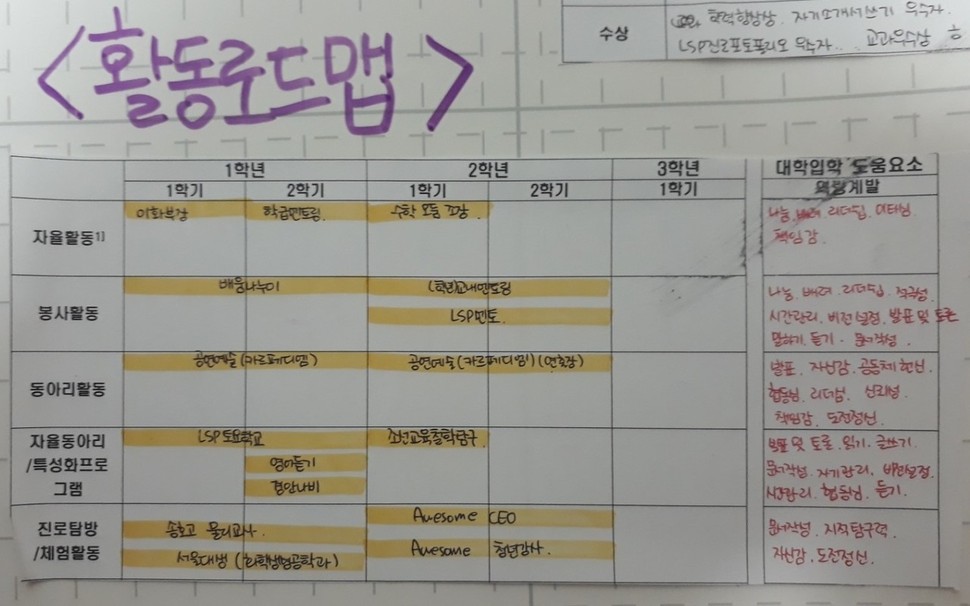 수상
학력향상상, 자기소개서쓰기 우수자.
LSP진로포토폴리오 우수자.. 교과우수상
<활동로드맵>
1학년 2학년 3학년 대학입학 도움요소
1학기 2학기 1학기 2학기 1학기 역량계발
자율활동1)
이화부장 학급멘토링 수학 모둠 조장
나눔, 배려, 리더십, 이타심,
책임감.
봉사활동
배움나누미 (학년)교내멘토링
LSP멘토.
나눔, 배려, 리더십, 적극성,
시간관리, 비전설정, 발표 및 토론
말하기, 듣기, 문서작성.
동아리활동
공연예술(카르페디엠) 공연예술(카르페디엠)(연출장)
발표, 자신감, 공동체 헌신,
협동심, 리더십, 신뢰성,
책임감, 도전정신.
자율동아리
/특성화프로
그램
LSP토요학교 소년교육철학탐구
영어듣기
경안나비
발표 및 토론, 읽기, 글쓰기,
문서작성, 자기관리, 비전설정,
시간관리, 협동심, 듣기.
진로탐방
/체험활동
송호고 물리교사. Awesome CEO
서울대생 (화학생명공학과) Awesome 청년강사.
문서작성, 지적탐구력
자신감, 도전정신.